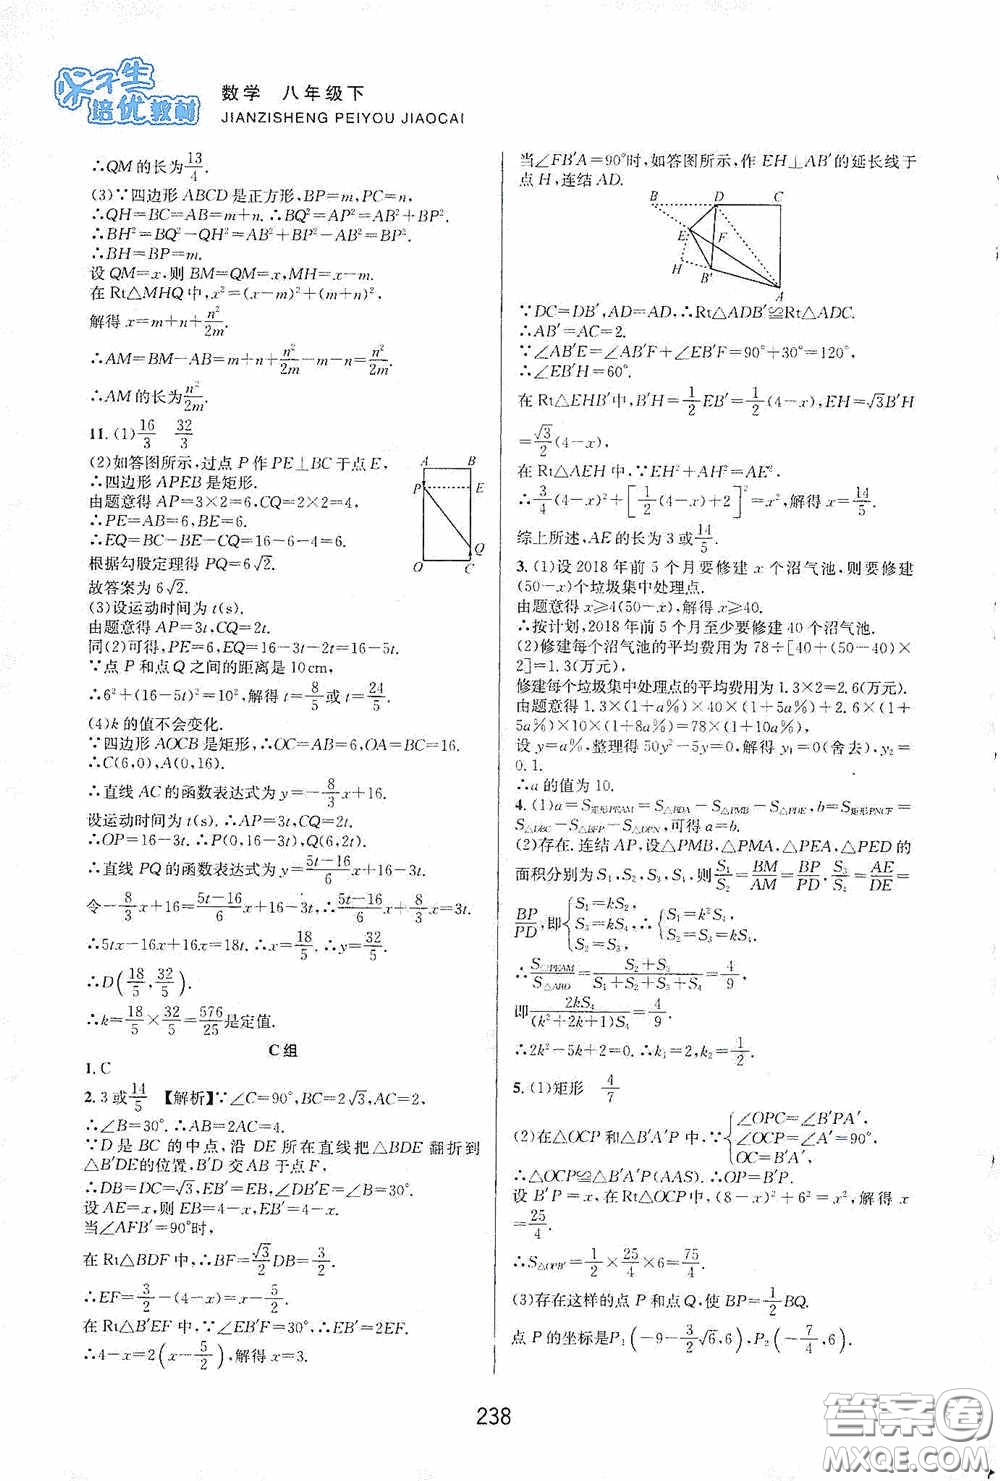 尖子生
培优教材
数学 八年级下
JIANZISHENG PEIYOU JIAOCAI
∴QM的长为13/4.
(3)∵四边形ABCD是正方形,BP=m,PC=n,
∴QH=BC=AB=m+n.∴BQ²=AP²=AB²+BP².
∴BH²=BQ²-QH²=AB²+BP²-AB²=BP².
∴BH=BP=m.
设QM=x,则BM=QM=x,MH=x-m.
在Rt△MHQ中,x²=(x-m)²+(m+n)²,
解得x=m+n+n²/2m.
∴AM=BM-AB=m+n+n²/2m-m-n=n²/2m.
∴AM的长为n²/2m.
11.(1)16/3 32/3
(2)如答图所示,过点P作PE⊥BC于点E,
∴四边形APEB是矩形.
由题意得AP=3×2=6,CQ=2×2=4,
∴PE=AB=6,BE=6.
∴EQ=BC-BE-CQ=16-6-4=6.
根据勾股定理得PQ=6√2.
故答案为6√2.
A B
P E
Q
O C
(3)设运动时间为t(s).
由题意得AP=3t,CQ=2t.
同(2)可得,PE=6,EQ=16-3t-2t=16-5t.
∵点P和点Q之间的距离是10cm,
∴6²+(16-5t)²=10²,解得t=8/5或t=24/5.
(4)k的值不会变化.
∵四边形AOCB是矩形,∴OC=AB=6,OA=BC=16.
∴C(6,0),A(0,16).
∴直线AC的函数表达式为y=-8/3x+16.
设运动时间为t(s).∴AP=3t,CQ=2t.
∴OP=16-3t.∴P(0,16-3t),Q(6,2t).
∴直线PQ的函数表达式为y=(5t-16)/6x+16-3t.
令-8/3x+16=(5t-16)/6x+16-3t,∴(5t-16)/6x+8/3x=3t.
∴5tx-16x+16x=18t.∴x=18/5.∴y=32/5.
∴D(18/5,32/5).
∴k=18/5×32/5=576/25是定值.
C组
1.C
2.3或14/5 【解析】∵∠C=90°,BC=2√3,AC=2,
∴∠B=30°.∴AB=2AC=4.
∵D是BC的中点,沿DE所在直线把△BDE翻折到
△B′DE的位置,B′D交AB于点F,
∴DB=DC=√3,EB′=EB,∠DB′E=∠B=30°.
设AE=x,则EB=4-x,EB′=4-x.
当∠AFB′=90°时,
在Rt△BDF中,∴BF=√3/2DB=3/2.
∴EF=3/2-(4-x)=x-5/2.
在Rt△B′EF中,∵∠EB′F=30°,∴EB′=2EF.
∴4-x=2(x-5/2),解得x=3.
当∠FB′A=90°时,如答图所示,作EH⊥AB′的延长线于
点H,连结AD.
B D C
E F
H B′
A
∵DC=DB′,AD=AD,∴Rt△ADB′≌Rt△ADC.
∴AB′=AC=2.
∵∠AB′E=∠AB′F+∠EB′F=90°+30°=120°,
∴∠EB′H=60°.
在Rt△EHB′中,B′H=1/2EB′=1/2(4-x),EH=√3B′H
=√3/2(4-x),
在Rt△AEH中,∵EH²+AH²=AE².
∴3/4(4-x)²+[1/2(4-x)+2]²=x²,解得x=14/5.
综上所述,AE的长为3或14/5.
3.(1)设2018年前5个月要修建x个沼气池,则要修建
(50-x)个垃圾集中处理点.
由题意得x≥4(50-x),解得x≥40.
∴按计划,2018年前5个月至少要修建40个沼气池.
(2)修建每个沼气池的平均费用为78÷[40+(50-40)×
2]=1.3(万元),
修建每个垃圾集中处理点的平均费用为1.3×2=2.6(万元).
由题意得1.3×(1+a%)×40×(1+5a%)+2.6×(1+
5a%)×10×(1+8a%)=78×(1+10a%),
设y=a%,整理得50y²-5y=0,解得y₁=0(舍去),y₂=
0.1.
∴a的值为10.
4.(1)a=S矩形PEAM=S△BDA-S△PMB-S△PDE,b=S矩形PNCF=
S△DBC-S△BFP-S△DPN,可得a=b.
(2)存在.连结AP,设△PMB,△PMA,△PEA,△PED的
面积分别为S₁,S₂,S₃,S₄,则S₁/S₂=BM/AM=BP/PD,S₃/S₄=AE/DE=
BP/PD,即{S₁=kS₂,S₃=kS₄,S₂=S₃.∴{S₁=k²S₄,S₂=S₃=kS₄.
∴S矩形PEAM/S△ABD=(S₂+S₃)/(S₁+S₂+S₃+S₄)=4/9,
即2kS₄/(k²+2k+1)S₄=4/9.
∴2k²-5k+2=0.∴k₁=2,k₂=1/2.
5.(1)矩形 4/7
(2)在△OCP和△B′A′P中,∵{∠OPC=∠B′PA′,∠OCP=∠A′=90°,OC=B′A′,
∴△OCP≌△B′A′P(AAS).∴OP=B′P.
设B′P=x,在Rt△OCP中,(8-x)²+6²=x²,解得x=
25/4.
∴S△OPB′=1/2×25/4×6=75/4.
(3)存在这样的点P和点Q,使BP=1/2BQ.
点P的坐标是P₁(-9-3/2√6,6),P₂(-7/4,6).
238
答案圈
MXQE.COM